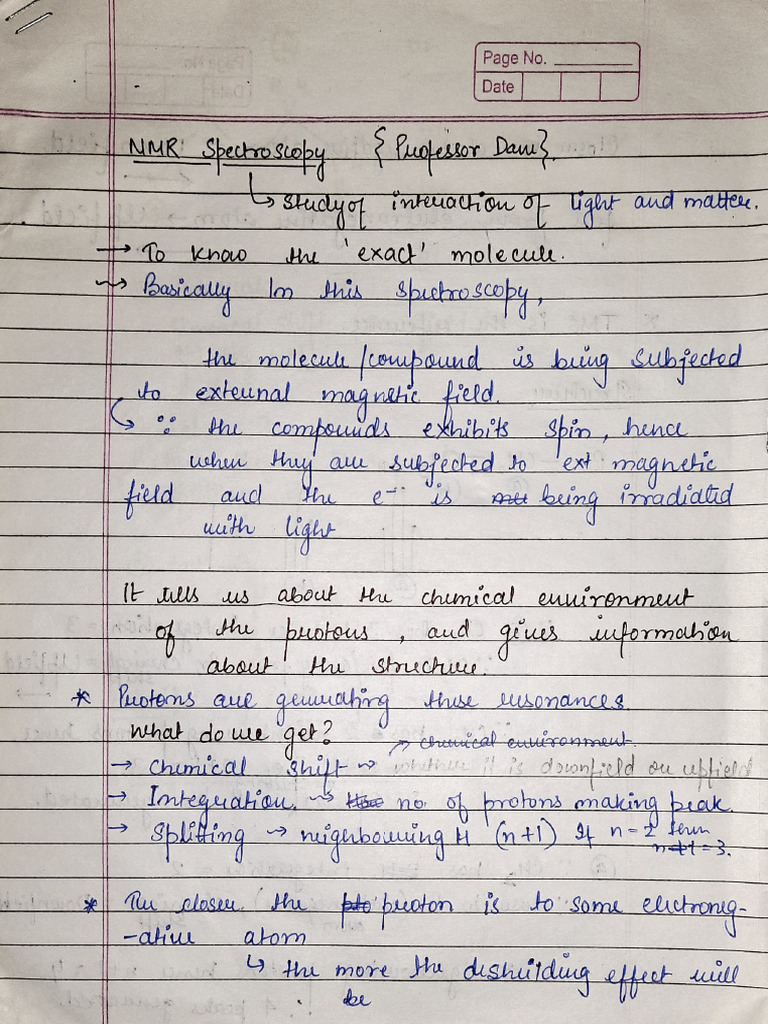 Page No.
Date
NMR Spectroscopy {Professor Dave}.
↳ study of interaction of light and matter.
→ To know the 'exact' molecule.
→ Basically In this spectroscopy,
the molecule/compound is being subjected
to external magnetic field.
↳ ∵ the compounds exhibits spin, hence
when they are subjected to ext magnetic
field and the e⁻ is being irradiated
with light
It tells us about the chemical environment
of the protons, and gives information
about the structure.
* Protons are generating these resonances.
What do we get?
chemical environment.
→ Chemical shift → whether it is downfield or upfield
→ Integration → no. of protons making peak.
→ Splitting → neighbouring H (n+1) If n=2 then
n+1=3.
* The closer the proton is to some electroneg-
-ative atom
↳ the more the deshielding effect will
be